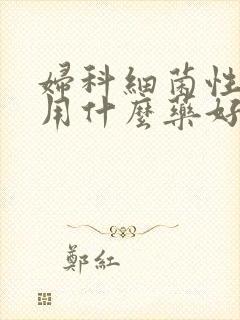 婦科細菌性
用什麼藥好
鄭紅